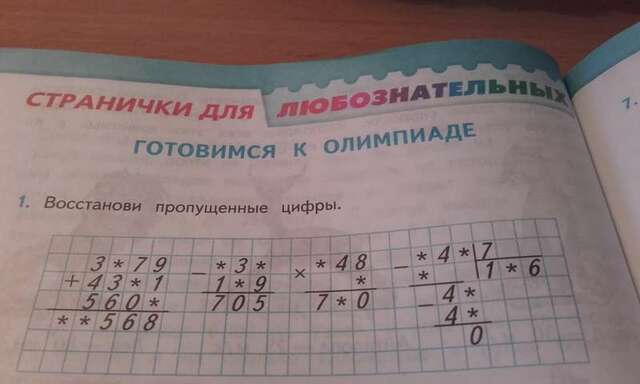 СТРАНИЧКИ ДЛЯ ЛЮБОЗНАТЕЛЬНЫХ
ГОТОВИМСЯ К ОЛИМПИАДЕ
1. Восстанови пропущенные цифры.
3*79
+ 43*1
560*
**568
− *3*
1*9
705
× *48
*
7*0
− *4* 7
* 1*6
− 4*
4*
0